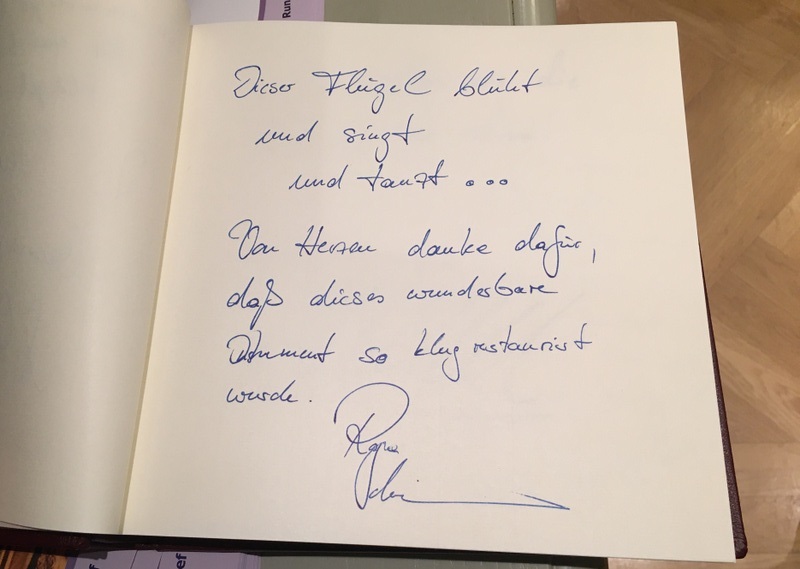 Run
Dieser Flügel blüht
und singt
und tanzt ...
Von Herzen danke dafür,
daß dieses wunderbare
so klug restauriert
wurde.
ef